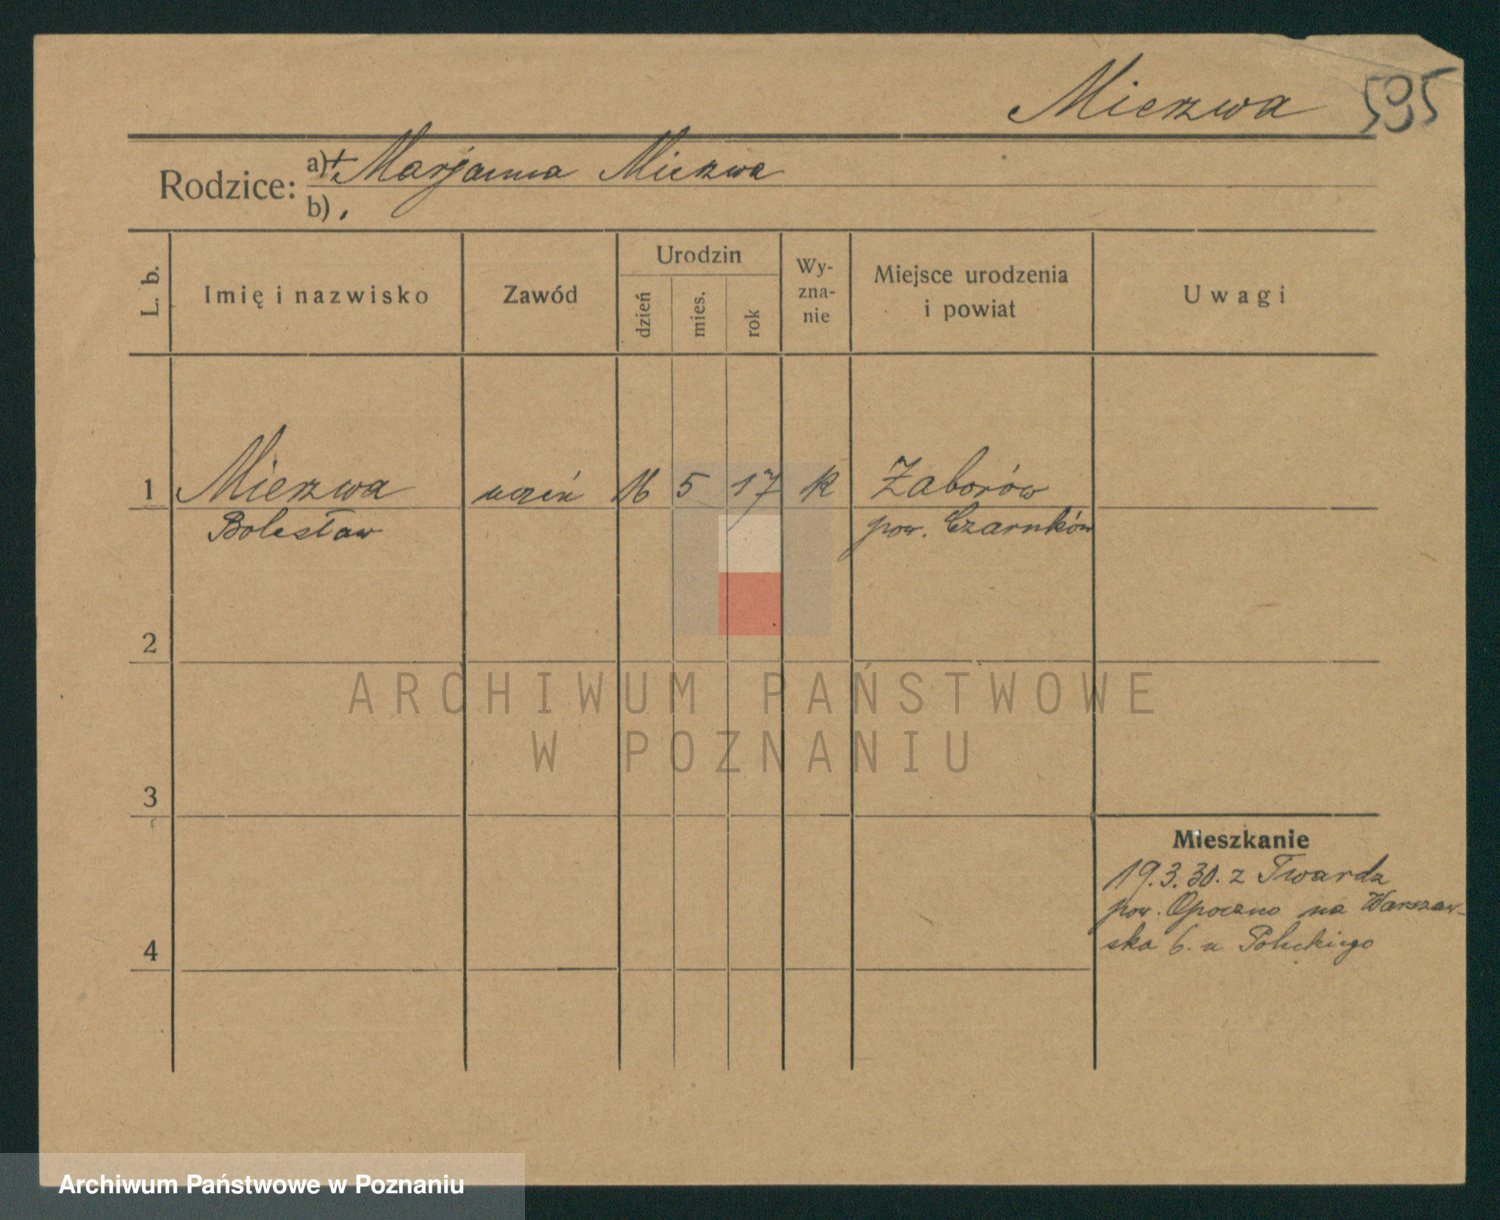 Mierzwa 595
Rodzice: a) + Marjanna Mierzwa
b)
L. b.
Imię i nazwisko
Zawód
Urodzin
dzień
mies.
rok
Wy-
zna-
nie
Miejsce urodzenia
i powiat
Uwagi
1 Mierzwa uczeń 16 5 17 k Zaborów
Bolesław pow. Czarnków
2
ARCHIWUM PAŃSTWOWE
W POZNANIU
3
Mieszkanie
19.3.30. z Twarda
pow. Opoczno na Warszaw-
4 ska 6. u
Archiwum Państwowe w Poznaniu